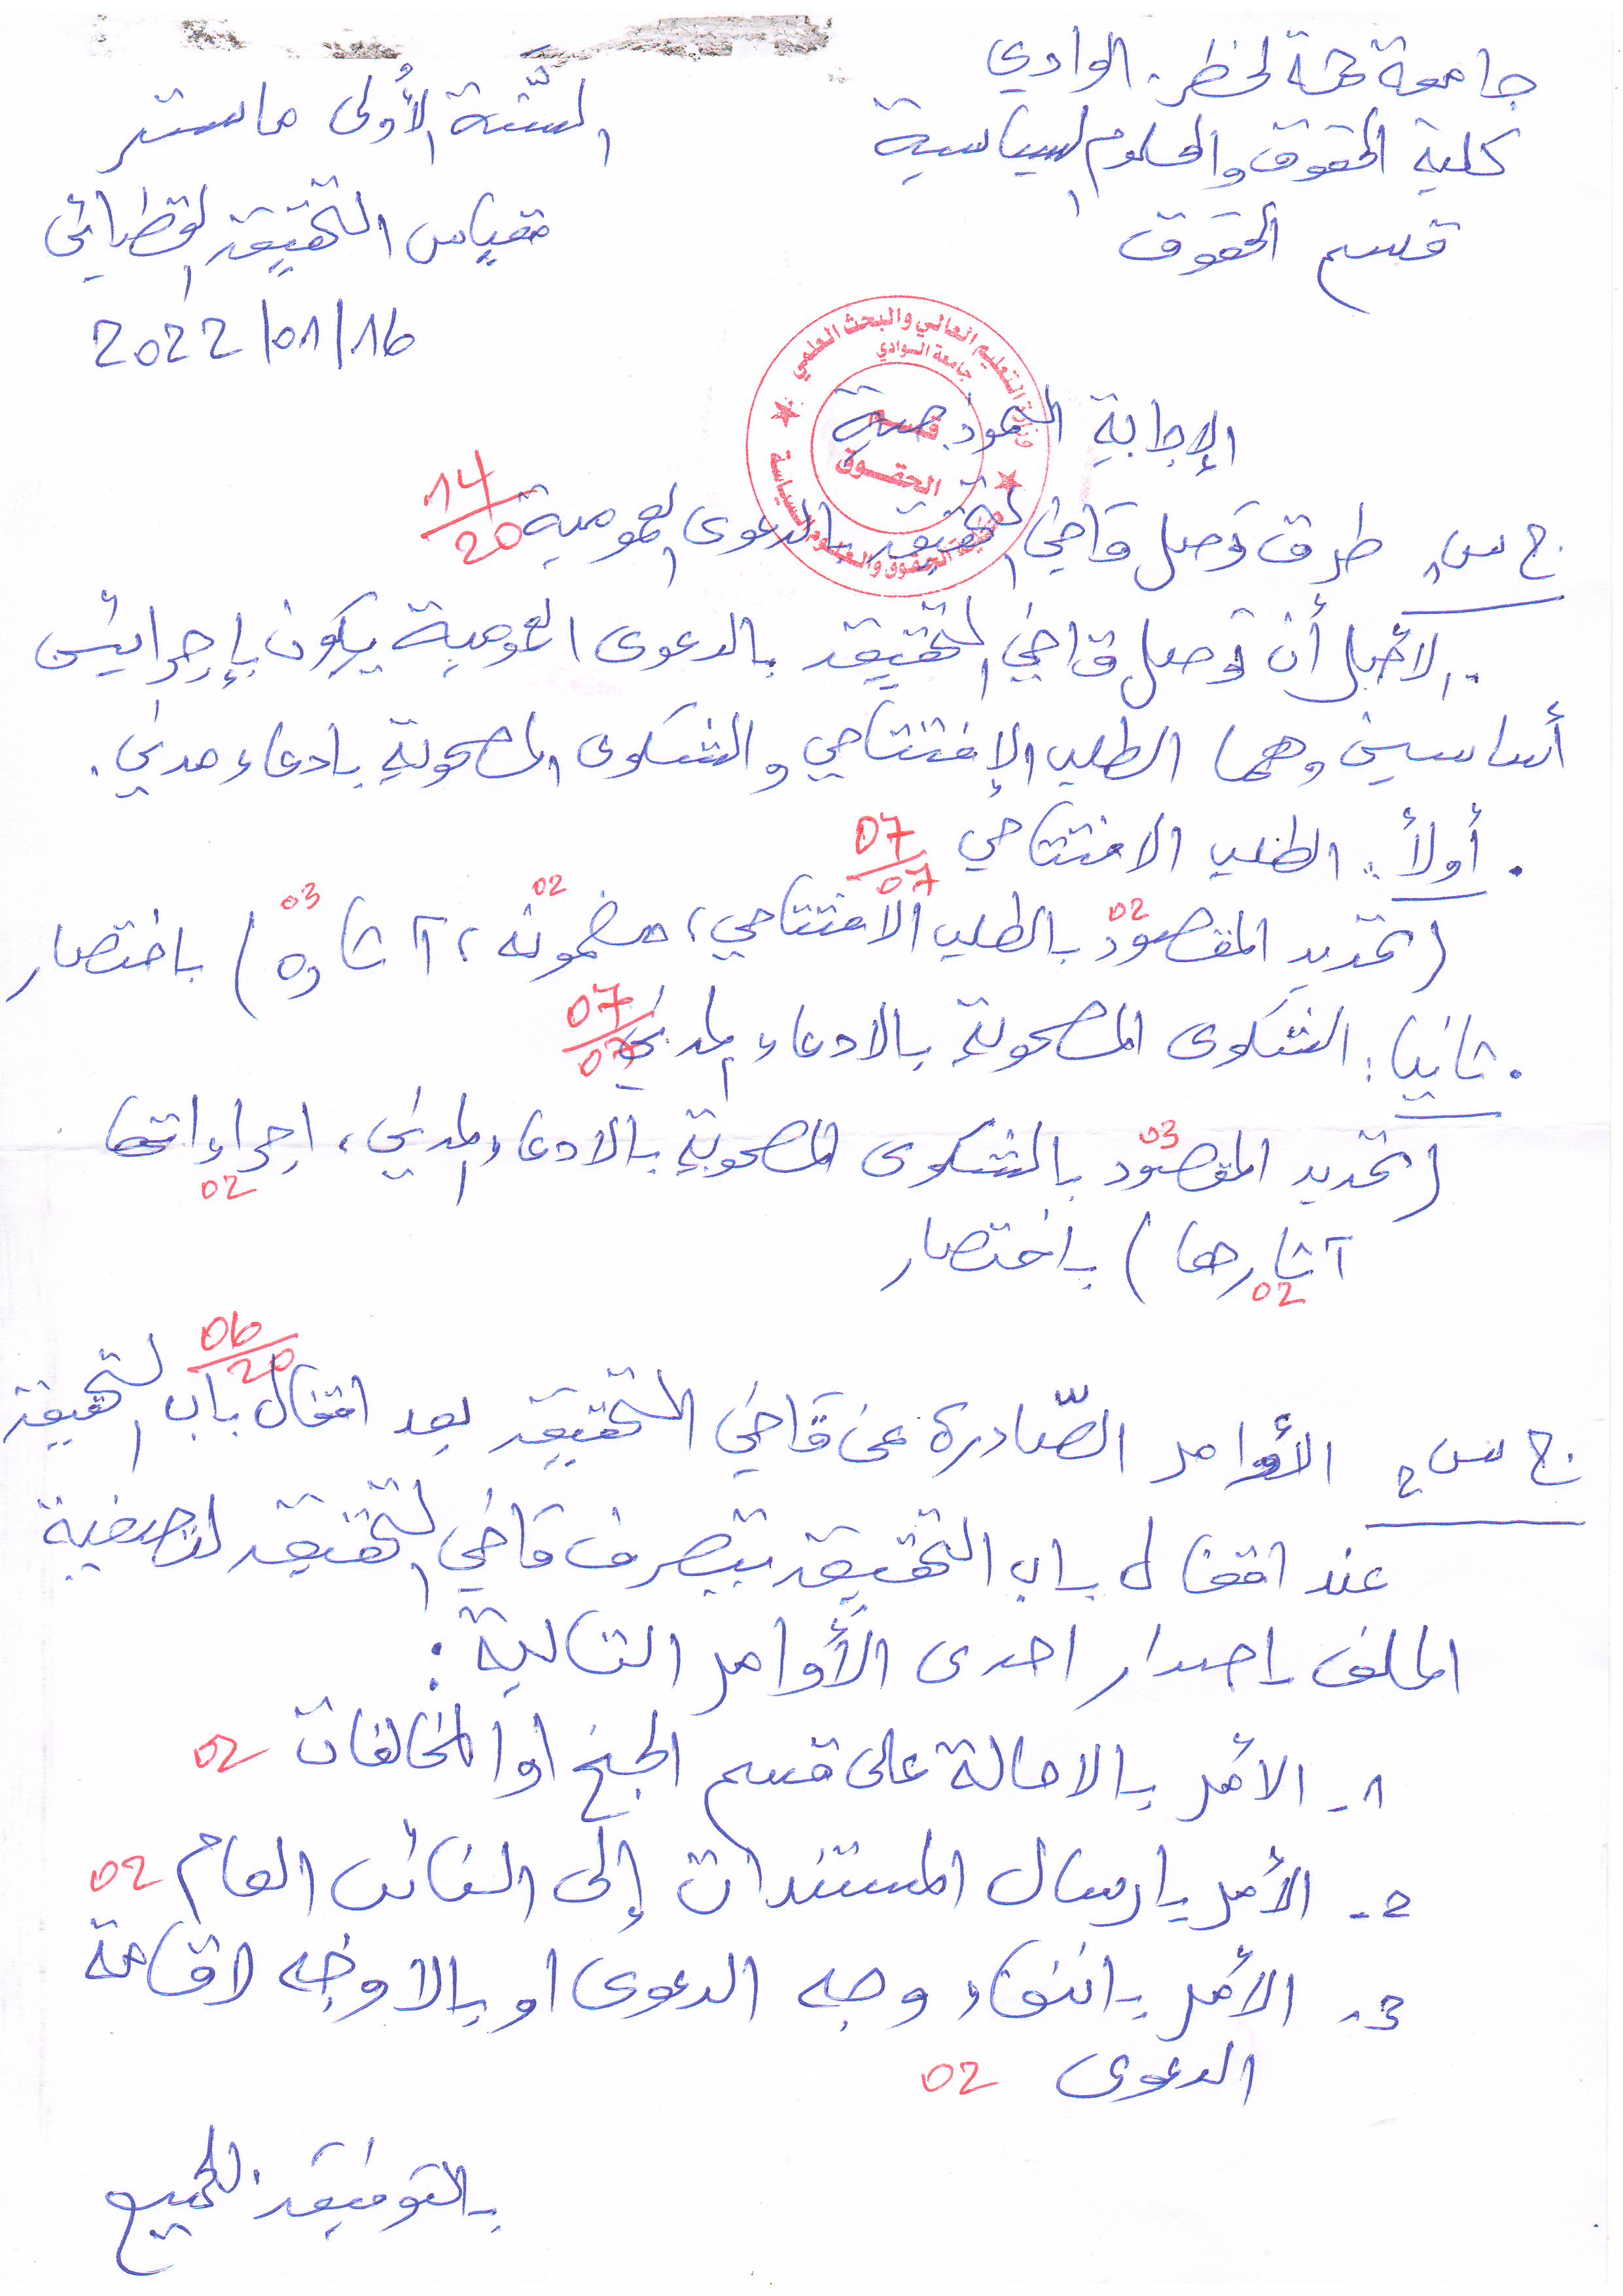 جامعة حمة لخضر. الوادي
كلية الحقوق والعلوم السياسية
قسم الحقوق
السّنة الأولى ماستر
مقياس التحقيق القضائي
2022/01/16
وزارة التعليم العالي والبحث العلمي
جامعة الوادي
قسم
الحقوق
كلية الحقوق والعلوم السياسية
الإجابة النموذجية
ج س1 طرق توصل قاضي التحقيق بالدعوى العمومية 14/20
. الأصل أن توصل قاضي التحقيق بالدعوى العمومية يكون بإجرائين
أساسين وهما الطلب الإفتتاحي والشكوى المصحوبة بادعاء مدني.
. أولاً: الطلب الافتتاحي 07/07
(تحديد المقصود 02 بالطلب الافتتاحي، مضمونه 02، آثاره 03) باختصار
. ثانيا: الشكوى المصحوبة بالادعاء المدني 07/07
(تحديد المقصود 03 بالشكوى المصحوبة بالادعاء المدني، اجراءاتها 02
آثارها 02) باختصار
ج س2 الأوامر الصّادرة عن قاضي التحقيق بعد اقفال باب التحقيق 06/20
عند اقفال باب التحقيق يتصرف قاضي التحقيق لتصفية
الملف باصدار احدى الأوامر التالية:
1- الأمر بالاحالة على قسم الجنح او المخالفات 02
2- الأمر بارسال المستندات إلى النائب العام 02
3- الأمر بانتفاء وجه الدعوى او بالا وجه لاقامة
الدعوى 02
بالتوفيق للجميع